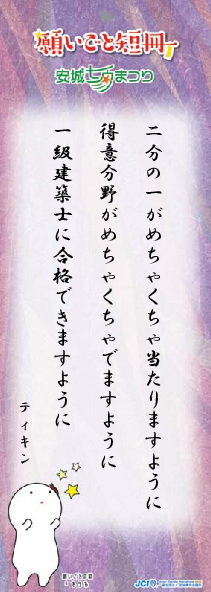 願いごと短冊
安城七夕まつり
二分の一がめちゃくちゃ当たりますように
得意分野がめちゃくちゃでますように
一級建築士に合格できますように
ティキン
願いごと短冊
JCI